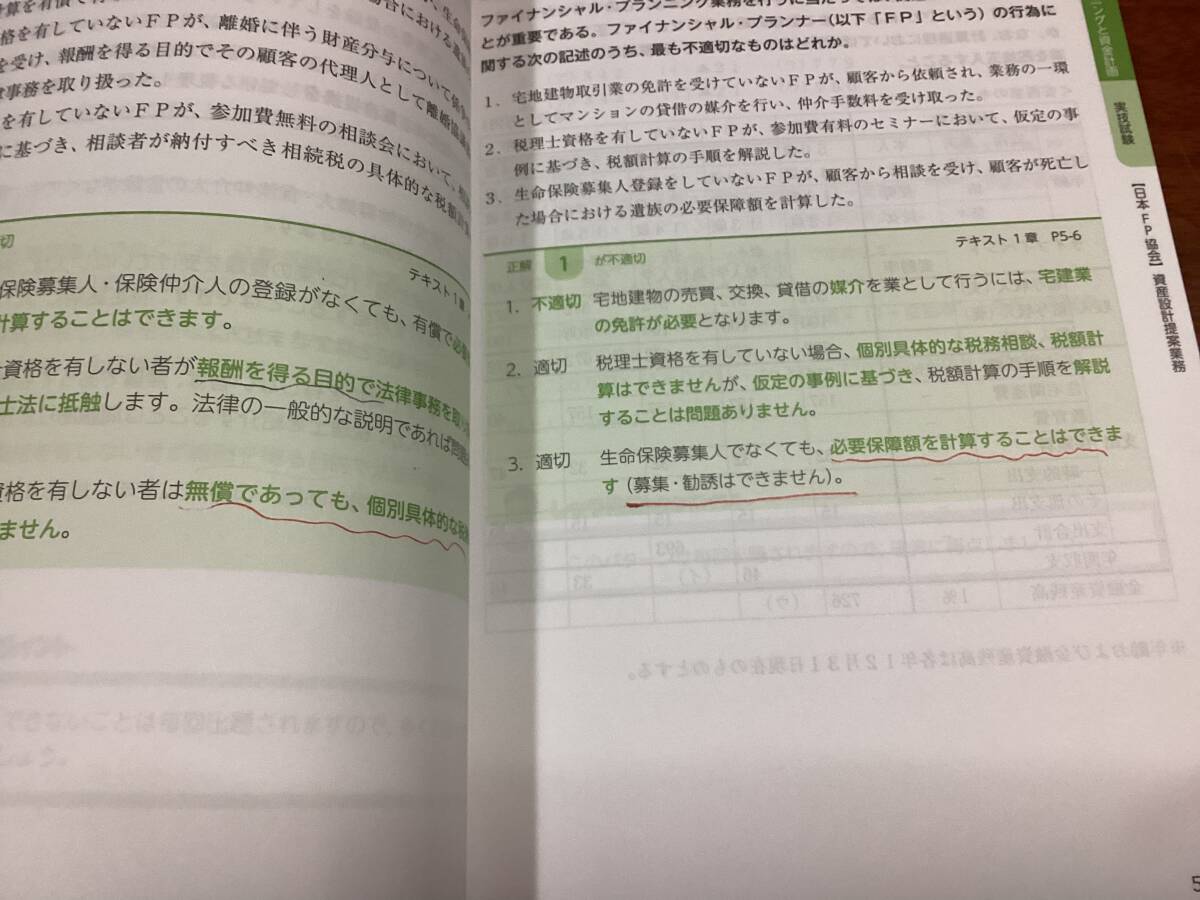 計算を有償で行
格を有していないＦＰが、離婚に伴う財産分与について
を受け、報酬を得る目的でその顧客の代理人として離婚協議
事務を取り扱った。
を有していないＦＰが、参加費無料の相談会において、
に基づき、相談者が納付すべき相続税の具体的な税額
切
テキスト1章
保険募集人・保険仲介人の登録がなくても、有償で必
計算することはできます。
資格を有しない者が報酬を得る目的で法律事務を取
士法に抵触します。法律の一般的な説明であれば問題
資格を有しない者は無償であっても、個別具体的な税
ません。
ファイナンシャル・プランニング業務を行うに当たっては、
とが重要である。ファイナンシャル・プランナー（以下「ＦＰ」という）の行為に
関する次の記述のうち、最も不適切なものはどれか。
1．宅地建物取引業の免許を受けていないＦＰが、顧客から依頼され、業務の一環
としてマンションの貸借の媒介を行い、仲介手数料を受け取った。
2．税理士資格を有していないＦＰが、参加費有料のセミナーにおいて、仮定の事
例に基づき、税額計算の手順を解説した。
3．生命保険募集人登録をしていないＦＰが、顧客から相談を受け、顧客が死亡し
た場合における遺族の必要保障額を計算した。
正解 1 が不適切
テキスト1章 P5-6
1．不適切 宅地建物の売買、交換、貸借の媒介を業として行うには、宅建業
の免許が必要となります。
2．適切 税理士資格を有していない場合、個別具体的な税務相談、税額計
算はできませんが、仮定の事例に基づき、税額計算の手順を解説
することは問題ありません。
3．適切 生命保険募集人でなくても、必要保障額を計算することはできま
す（募集・勧誘はできません）。
ニングと資金計画
実技試験
【日本ＦＰ協会】資産設計提案業務
5